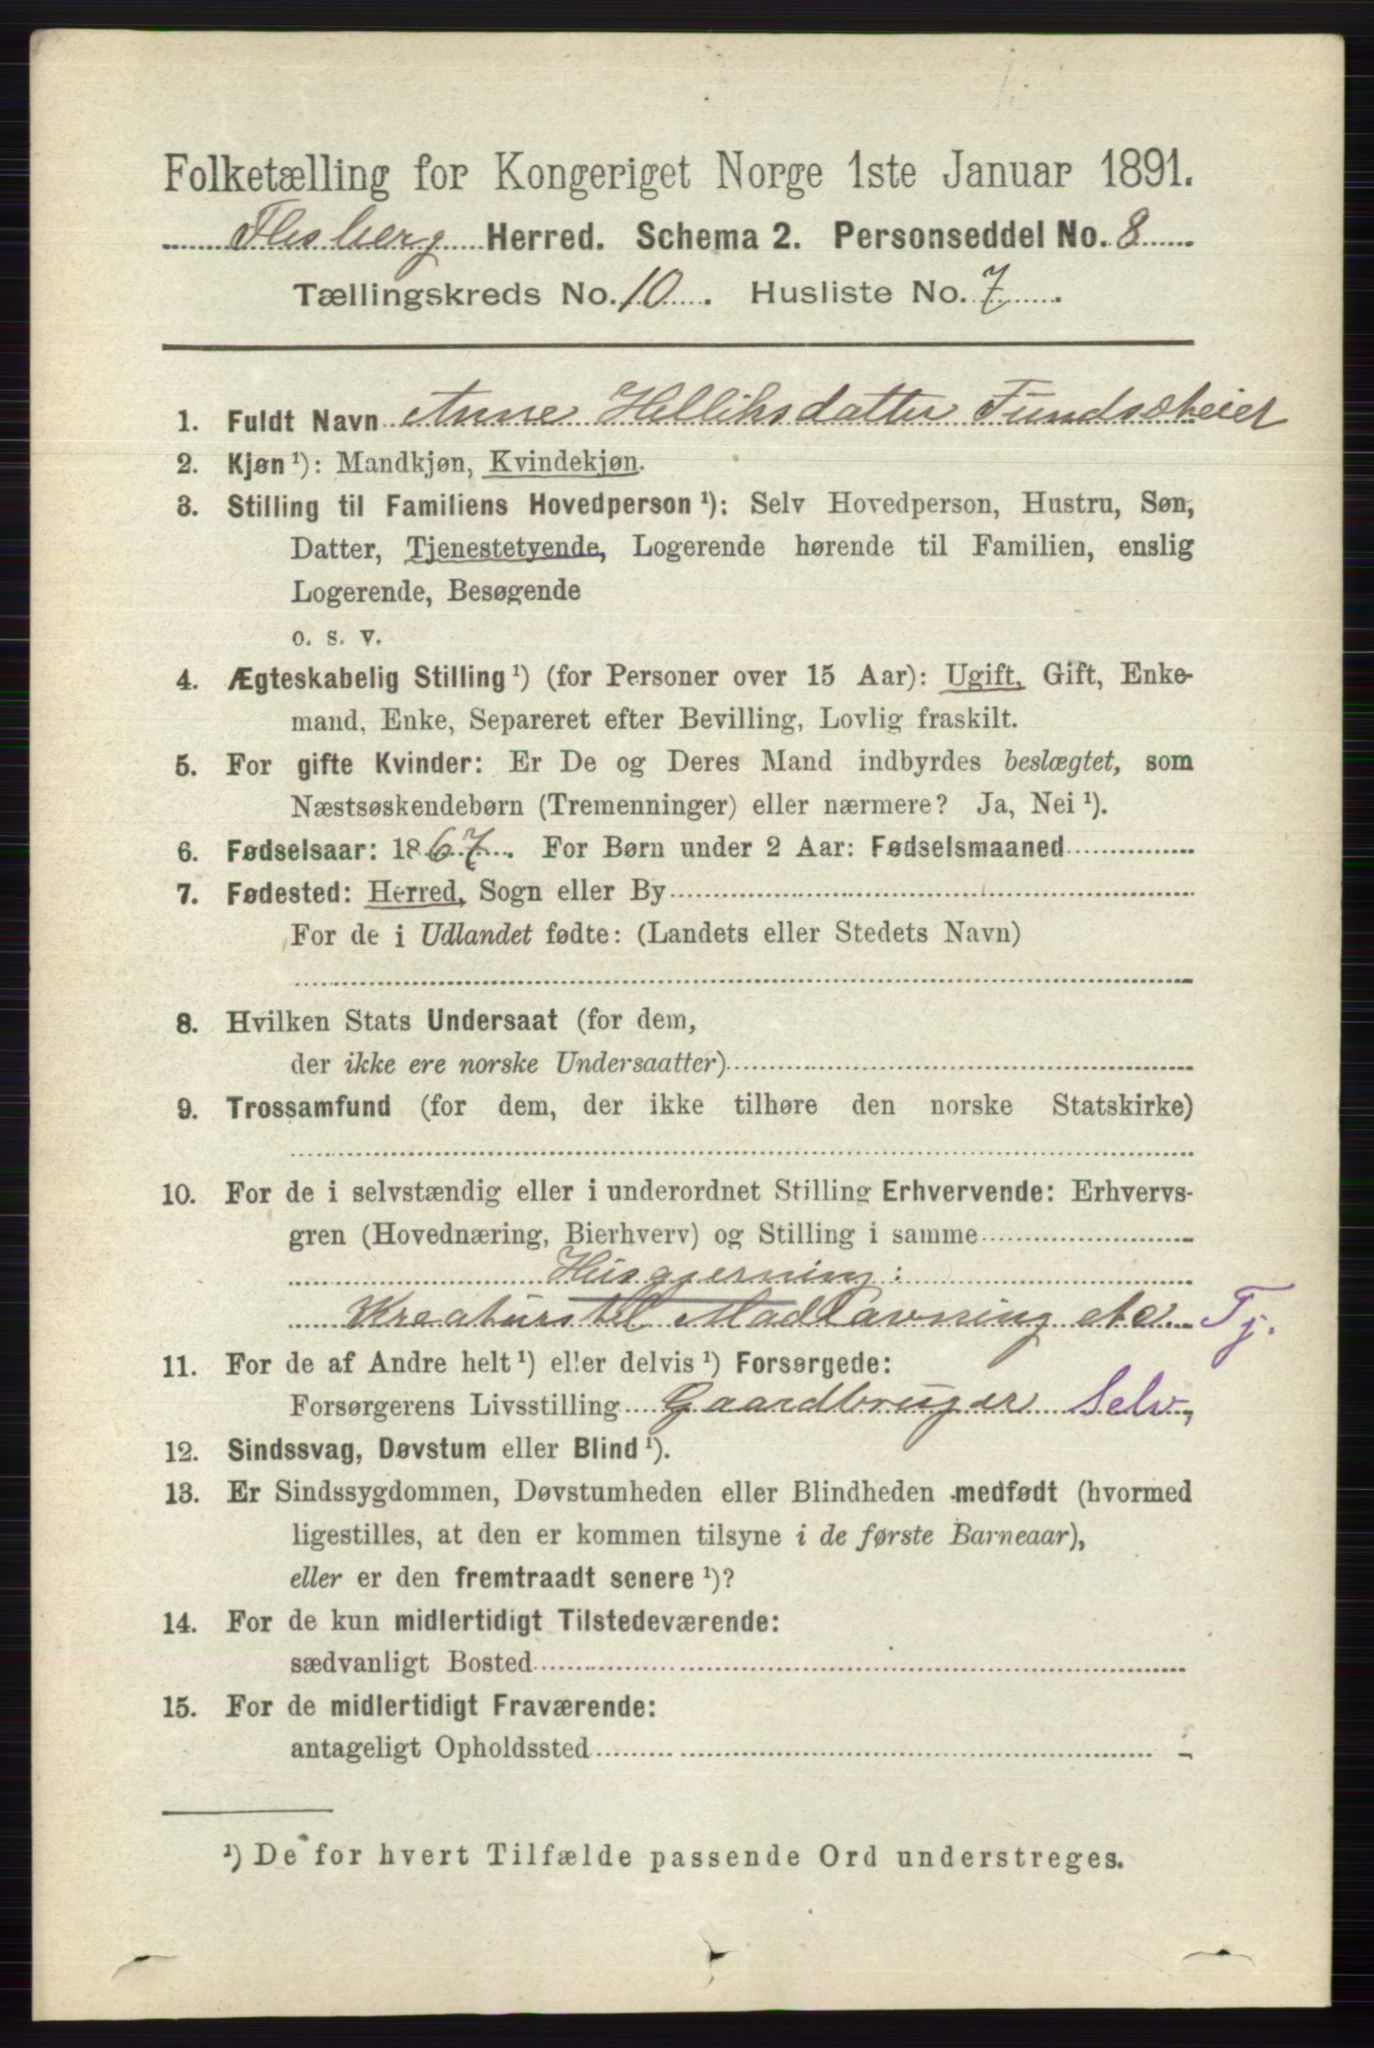 Folketælling for Kongeriget Norge 1ste Januar 1891.
Flesberg Herred. Schema 2. Personseddel No. 8
Tællingskreds No. 10. Husliste No. 7
1. Fuldt Navn Anne Helliksdatter Fundsøheiet
2. Kjøn ¹): Mandkjøn, Kvindekjøn.
3. Stilling til Familiens Hovedperson ¹): Selv Hovedperson, Hustru, Søn,
Datter, Tjenestetyende, Logerende hørende til Familien, enslig
Logerende, Besøgende
o. s. v.
4. Ægteskabelig Stilling ¹) (for Personer over 15 Aar): Ugift, Gift, Enke-
mand, Enke, Separeret efter Bevilling, Lovlig fraskilt.
5. For gifte Kvinder: Er De og Deres Mand indbyrdes beslægtet, som
Næstsøskendebørn (Tremenninger) eller nærmere? Ja, Nei ¹).
6. Fødselsaar: 1867. For Børn under 2 Aar: Fødselsmaaned
7. Fødested: Herred, Sogn eller By
For de i Udlandet fødte: (Landets eller Stedets Navn)
8. Hvilken Stats Undersaat (for dem,
der ikke ere norske Undersaatter)
9. Trossamfund (for dem, der ikke tilhøre den norske Statskirke)
10. For de i selvstændig eller i underordnet Stilling Erhvervende: Erhvervs-
gren (Hovednæring, Bierhverv) og Stilling i samme
Husgjerning:
Kreaturstel Madlavning etc Tj.
11. For de af Andre helt ¹) eller delvis ¹) Forsørgede:
Forsørgerens Livsstilling Gaardbruger Selv,
12. Sindssvag, Døvstum eller Blind ¹).
13. Er Sindssygdommen, Døvstumheden eller Blindheden medfødt (hvormed
ligestilles, at den er kommen tilsyne i de første Barneaar),
eller er den fremtraadt senere ¹)?
14. For de kun midlertidigt Tilstedeværende:
sædvanligt Bosted
15. For de midlertidigt Fraværende:
antageligt Opholdssted
¹) De for hvert Tilfælde passende Ord understreges.